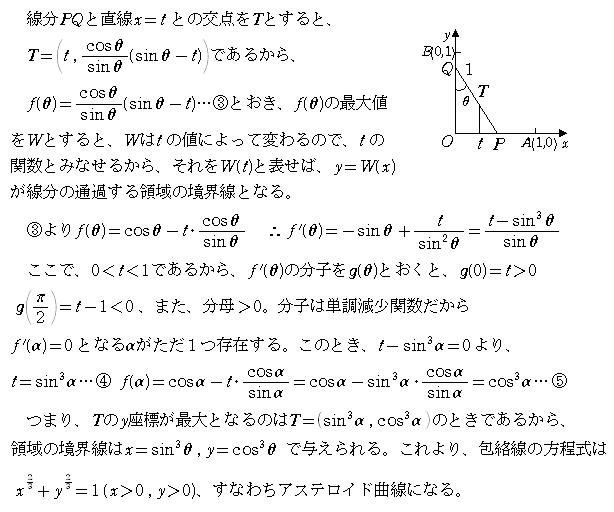 線分PQと直線x=tとの交点をTとすると、
T=(t, cosθ/sinθ (sinθ−t))であるから、
f(θ)=cosθ/sinθ (sinθ−t)…③とおき、f(θ)の最大値
をWとすると、Wはtの値によって変わるので、tの
関数とみなせるから、それをW(t)と表せば、y=W(x)
が線分の通過する領域の境界線となる。
y
B(0,1)
Q
1
θ
T
O
t
P
A(1,0)
x
③よりf(θ)=cosθ−t・cosθ/sinθ ∴ f′(θ)=−sinθ+t/sin²θ=(t−sin³θ)/sinθ
ここで、0<t<1であるから、f′(θ)の分子をg(θ)とおくと、g(0)=t>0
g(π/2)=t−1<0、また、分母>0。分子は単調減少関数だから
f′(α)=0となるαがただ1つ存在する。このとき、t−sin³α=0より、
t=sin³α…④ f(α)=cosα−t・cosα/sinα=cosα−sin³α・cosα/sinα=cos³α…⑤
つまり、Tのy座標が最大となるのはT=(sin³α, cos³α)のときであるから、
領域の境界線はx=sin³θ, y=cos³θ で与えられる。これより、包絡線の方程式は
x^(2/3)+y^(2/3)=1(x>0, y>0)、すなわちアステロイド曲線になる。